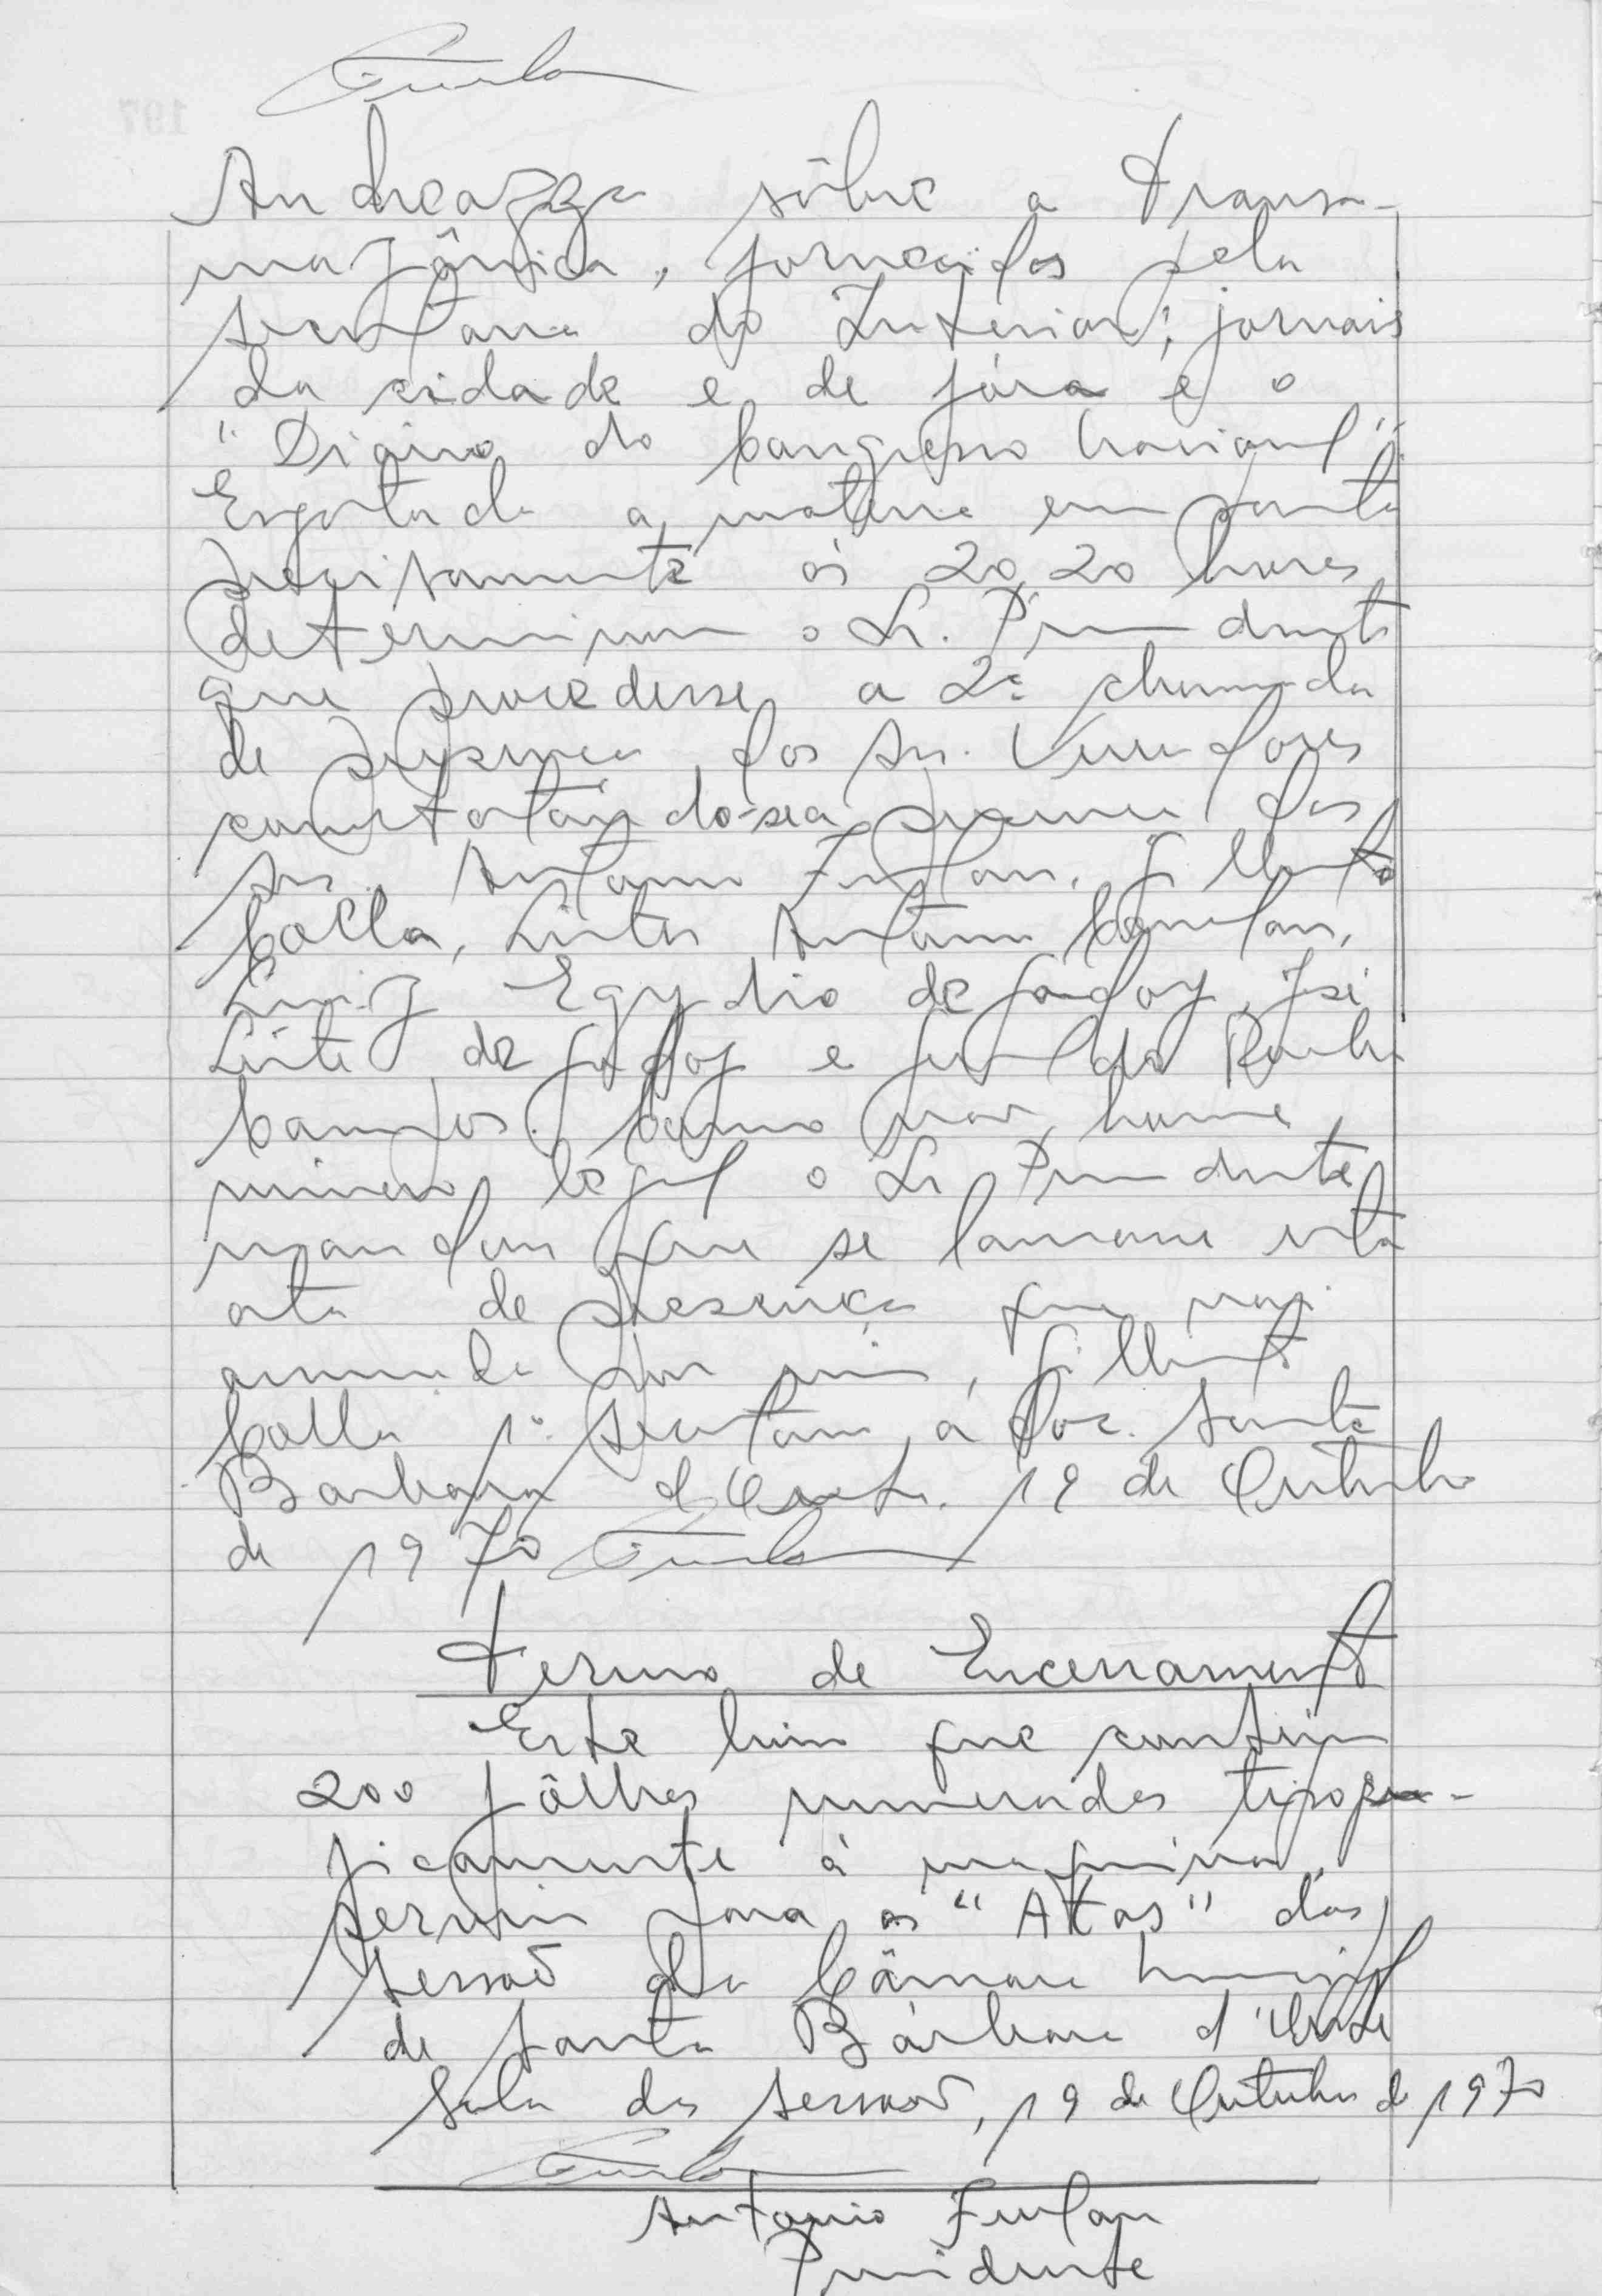 Furlan
Andreazza sôbre a Transa-
mazônica, fornecidos pela
secretaria do Interior; jornais
da cidade e de fóra e o
"Diário do Congresso Nacional".
Esgotada a matéria em pauta
precisamente ás 20,20 horas
determinou o Sr. Presidente
que procedesse a 2ª chamada
de presença dos Srs. Vereadores
constatando-se a presença dos
Srs. Antonio Furlan, Gilberto
Colla, Antonio
Luiz Egydio de Godoy, José
Leite de Godoy e Geraldo Rocha
Campos. Como não houve
número legal o Sr. Presidente
mandou que se lavrasse esta
ata de presença que vai
assinada por mim, Gilberto
Colla 1º Secretario, a doc. Santa
Barbara d'Oeste, 19 de Outubro
de 1970 Furlan
Termo de Encerramento
Este livro que contém
200 fôlhas numeradas tipogra-
ficamente á maquina,
serviu para as "Atas" das
sessões da Câmara Municipal
de Santa Bárbara d'Oeste
Sala das sessões, 19 de Outubro de 1970
Furlan
Antonio Furlan
Presidente